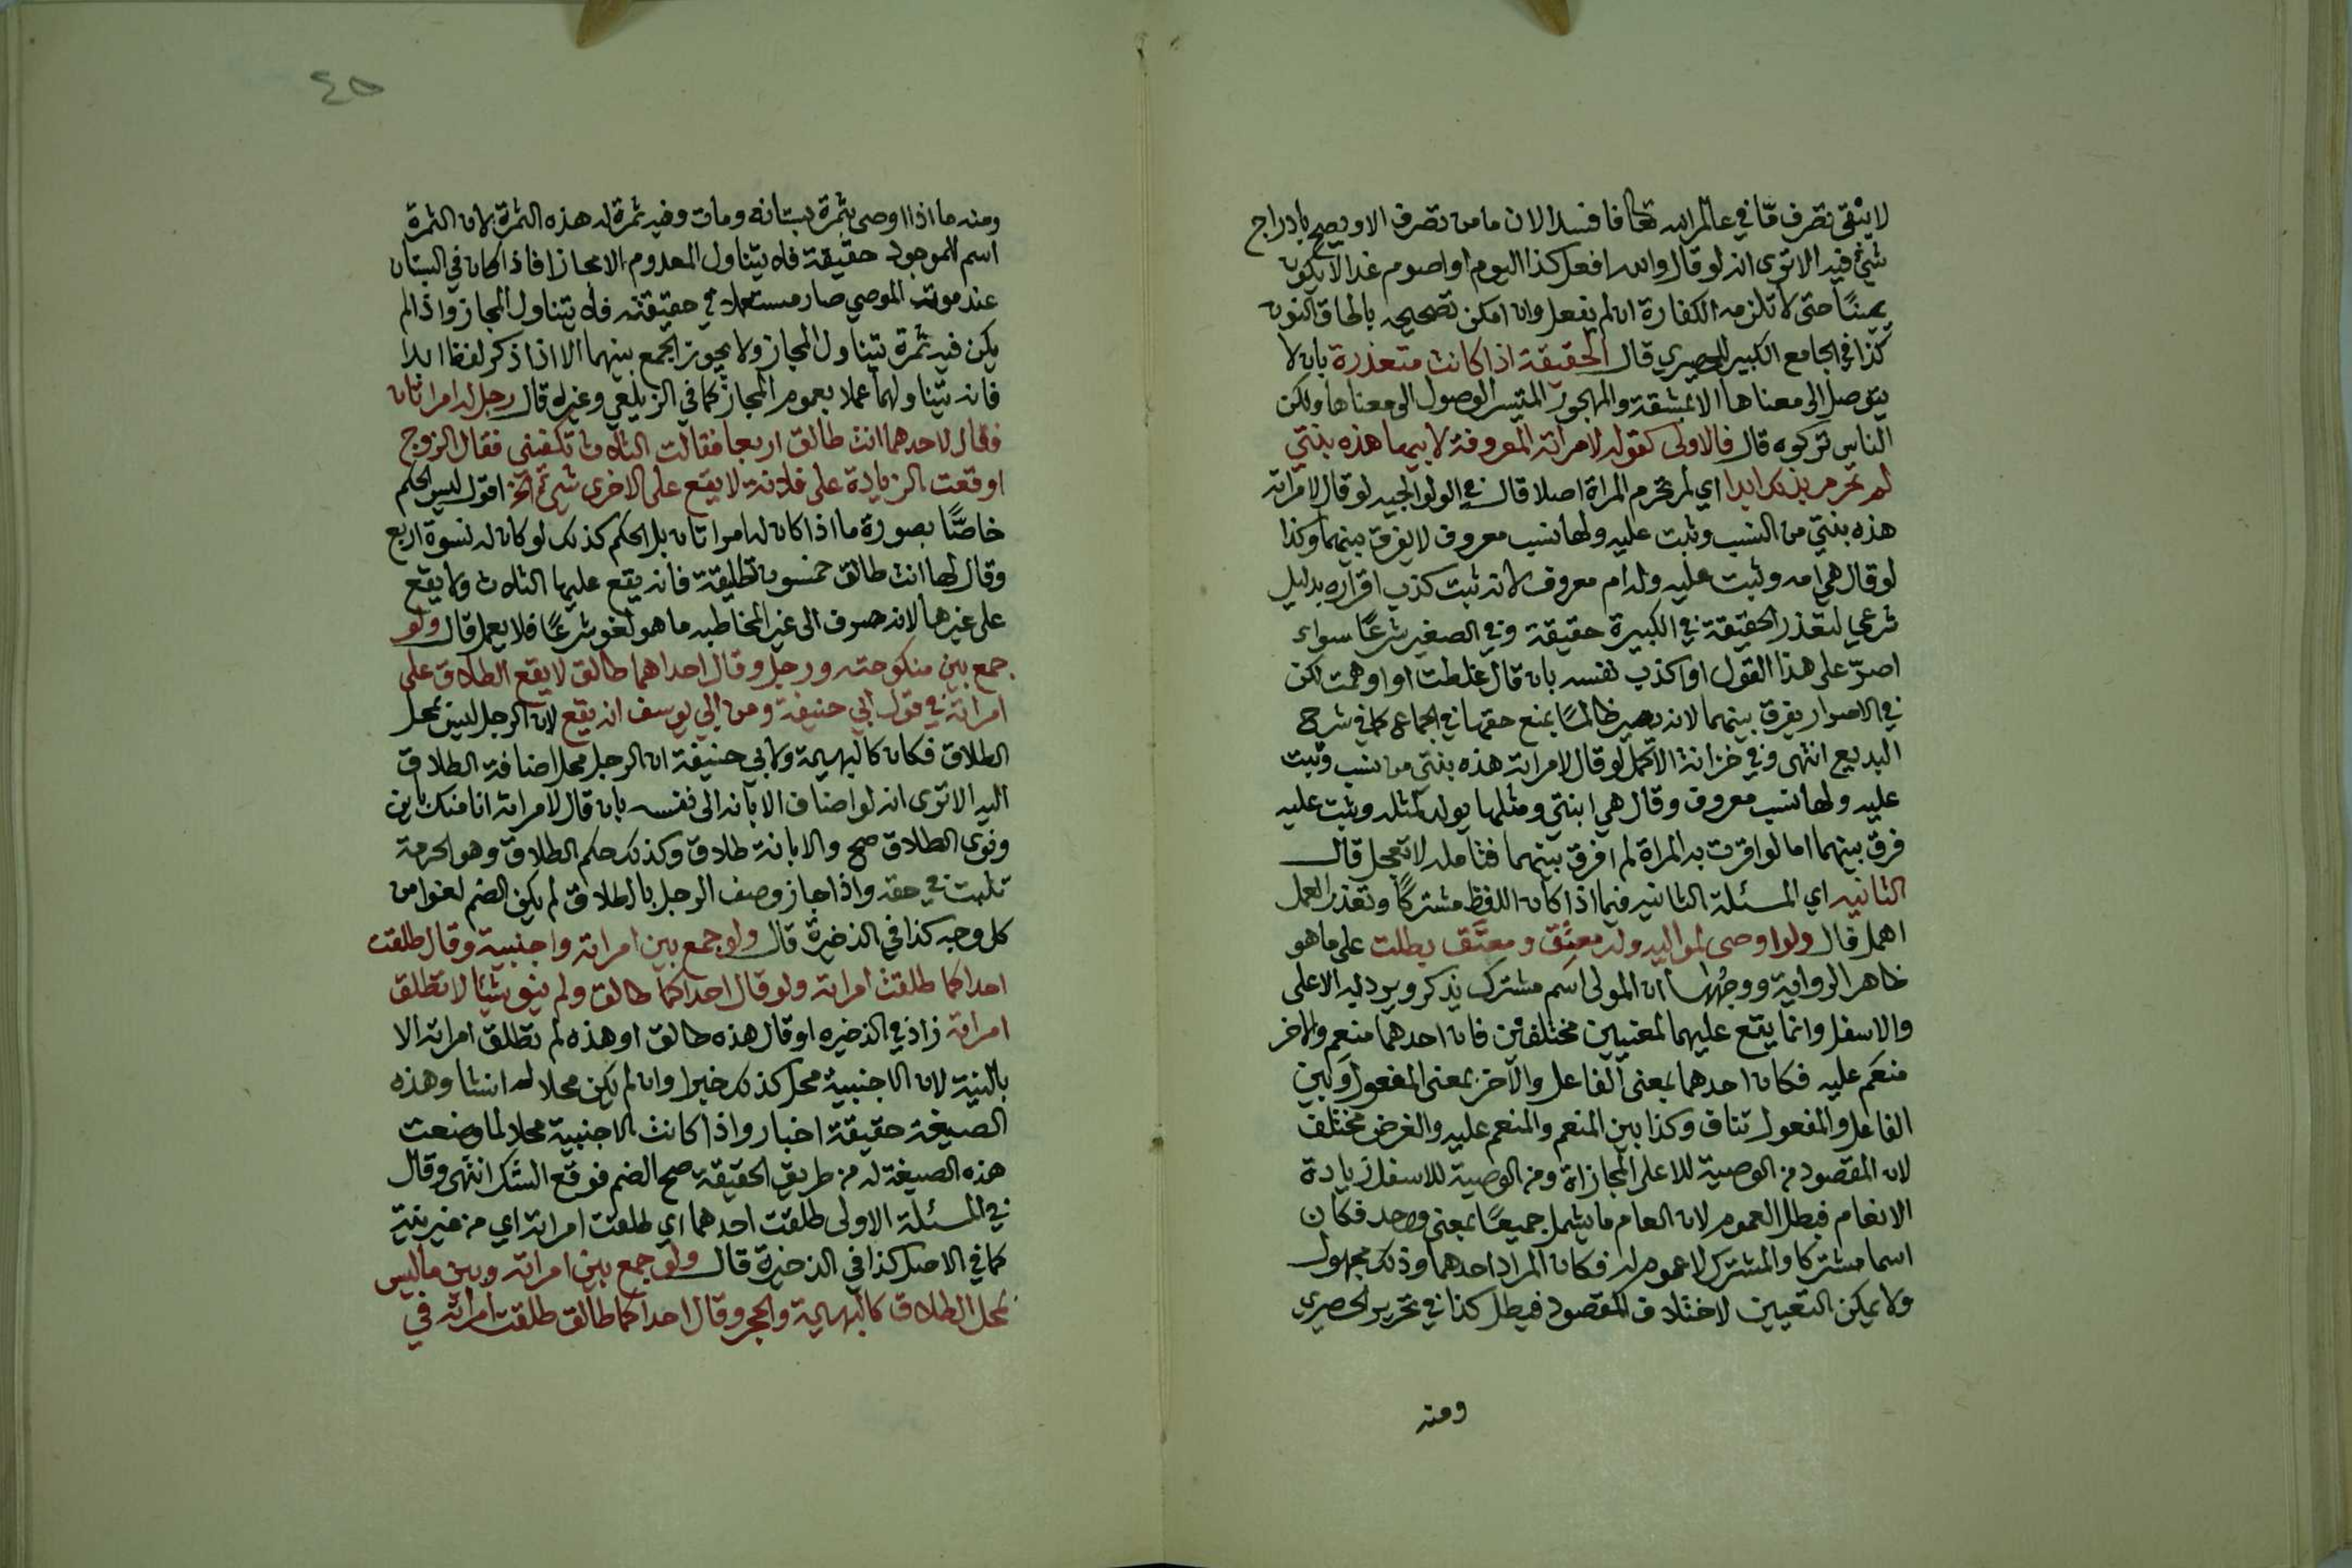 لا يبقى تصرف ما في عالم الله تعالى فاسدا لان ما من تصرف الا ويصح بادراج
شيء فيه الا ترى انه لو قال والله افعل كذا اليوم او اصوم غدا لا يكون
يمينًا حتى لا تلزمه الكفارة ان لم يفعل وان امكن تصحيحه بالحاق النون
كذا في الجامع الكبير للحصيري قال الحقيقة اذا كانت متعذرة بان لا
يتوصل الى معناها الا بمشقة والمهجور المتيسر الوصول الى معناها ولكن
الناس تركوه قال فالاولى كقوله لامراته المعروفة لابيها هذه بنتي
لم تحرم بذلك ابدا اي لم تحرم المراة اصلا قال في الولوالجيه لو قال لامراته
هذه بنتي من النسب وثبت عليه ولها نسب معروف لا يفرق بينهما وكذا
لو قال هي امه وثبت عليه وله ام معروف لانه ثبت كذب اقراره بدليل
شرعي لتعذر الحقيقة في الكبيرة حقيقة وفي الصغير شرعًا سواء
اصرّ على هذا القول او اكذب نفسه بان قال غلطت او اوهمت لكن
في الاصرار يفرق بينهما لانه يصير ظالمًا بمنع حقها في الجماع كما في شرح
البديع انتهى وفي خزانة الاكمل لو قال لامراته هذه بنتي من نسب وثبت
عليه ولها نسب معروف وقال هي ابنتي ومثلها يولد لمثله وثبت عليه
فرق بينهما اما لو اقرت به المراة لم افرق بينهما فتامله لا تعجل قال
الثانيه اي المسئلة الثانيه فيما اذا كان اللفظ مشتركًا وتعذر العمل
اهمل قال ولو اوصى لمواليه وله معتِق ومعتَق بطلت على ما هو
ظاهر الرواية ووجهها ان المولى اسم مشترك يذكر ويراد به الاعلى
والاسفل وانما يقع عليهما لمعنيين مختلفين فان احدهما منعِم والاخر
منعَم عليه فكان احدهما بمعنى الفاعل والآخر بمعنى المفعول وبين
الفاعل والمفعول تناف وكذا بين المنعم والمنعم عليه والغرض مختلف
لان المقصود من الوصية للاعلى المجازاة ومن الوصية للاسفل زيادة
الانعام فبطل العموم لان العام ما يشمل جميعًا بمعنى واحد فكان
اسما مشتركا والمشترك لا عموم له فكان المراد احدهما وذلك مجهول
ولا يمكن التعيين لاختلاف المقصود فبطل كذا في تحرير الحصيري
ومنه
٤٥
ومنه ما اذا اوصى بثمرة بستانه ومات وفيه ثمرة له هذه الثمرة لان الثمرة
اسم للموجود حقيقة فلا يتناول المعدوم الا مجازا فاذا كان في البستان
عند موت الموصي صار مستعملا في حقيقته فلا يتناول المجاز واذا لم
يكن فيه ثمرة يتناول المجاز ولا يجوز الجمع بينهما الا اذا ذكر لفظ ابدا
فانه يتناولهما عملا بعموم المجاز كما في الزيلعي وغيره قال رجل له امراتان
فقال لاحدهما انت طالق اربعا فقالت الثلاث تكفيني فقال الزوج
اوقعت الزيادة على فلانة لا يقع على الاخرى شيء الخ اقول ليس الحكم
خاصًّا بصورة ما اذا كان له امراتان بل الحكم كذلك لو كان له نسوة اربع
وقال لها انت طالق خمسون تطليقة فانه يقع عليها الثلاث ولا يقع
على غيرها لانه صرف الى غير المخاطبه ما هو لغو شرعًا فلا يعمل قال ولو
جمع بين منكوحته ورجل وقال احداهما طالق لا يقع الطلاق على
امراته في قول ابي حنيفة وعن ابي يوسف انه يقع لان الرجل ليس بمحل
الطلاق فكان كالبهيمة ولابي حنيفة ان الرجل محل اضافة الطلاق
اليه الا ترى انه لو اضاف الابانه الى نفسه بان قال لامراته انا منك باين
ونوى الطلاق صح والابانة طلاق وكذلك حكم الطلاق وهو الحرمة
تثبت في حقه واذا جاز وصف الرجل بالطلاق لم يكن الضم لغوا من
كل وجه كذا في الذخيرة قال ولو جمع بين امراته واجنبية وقال طلقت
احداكما طلقت امراته ولو قال احداكما طالق ولم ينو شيئا لا تطلق
امراته زاد في الذخيره او قال هذه طالق او هذه لم تطلق امراته الا
بالنية لان الاجنبية محل كذلك خبرا وان لم يكن محلا له انشا وهذه
الصيغة حقيقة اخبار واذا كانت الاجنبية محلا لما وضعت
هذه الصيغة له من طريق الحقيقة صح الضم فوقع الشك انتهى وقال
في المسئلة الاولى طلقت احدهما اي طلقت امراته اي من غير نية
كما في الاصل كذا في الذخيرة قال ولو جمع بين امراته وبين ما ليس
بمحل الطلاق كالبهيمة والحجر وقال احداكما طالق طلقت امراته في